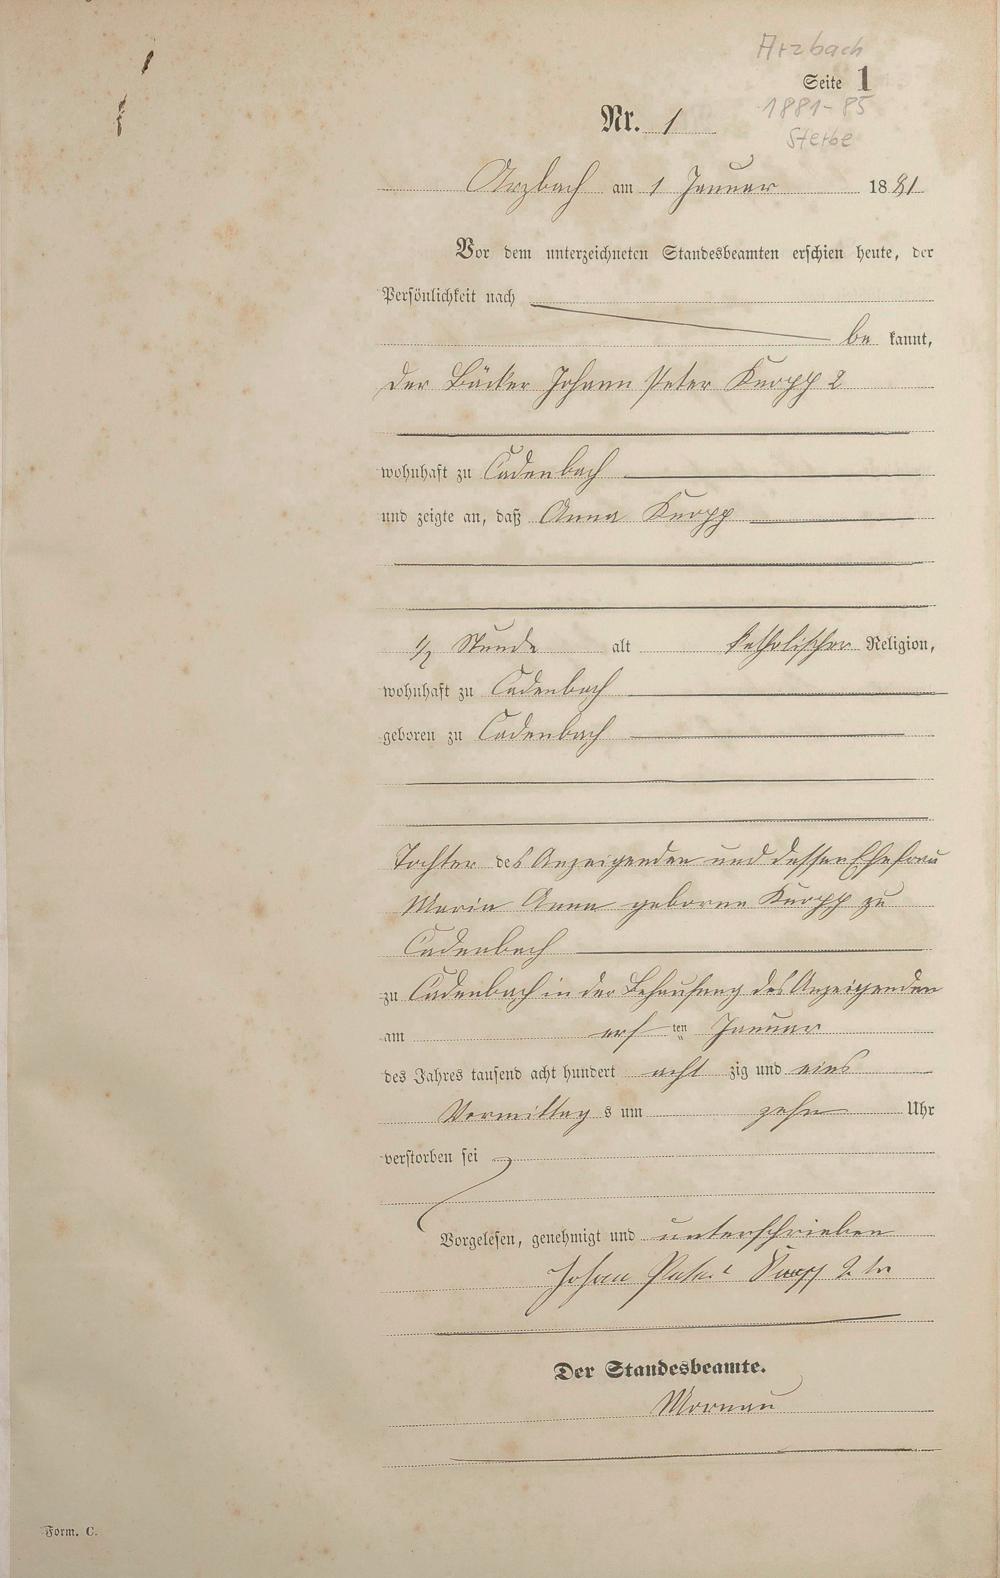 Arzbach
Seite 1
1881-85
Sterbe
Nr. 1
Arzbach am 1 Januar 1881
Vor dem unterzeichneten Standesbeamten erschien heute, der
Persönlichkeit nach
be kannt,
der Bäcker Johann Peter Knopp 2
wohnhaft zu Cadenbach
und zeigte an, daß Anna Knopp
1/2 Stunde alt katholischer Religion,
wohnhaft zu Cadenbach
geboren zu Cadenbach
Tochter des Anzeigenden und dessen Ehefrau
Maria Anna geborne Knopp zu
Cadenbach
zu Cadenbach in der Behausung des Anzeigenden
am ers ten Januar
des Jahres tausend acht hundert acht zig und eins
Vormittag s um zehn Uhr
verstorben sei
Vorgelesen, genehmigt und unterschrieben
Johan Peter Knopp 2 te
Der Standesbeamte.
Mornau
Form. C.